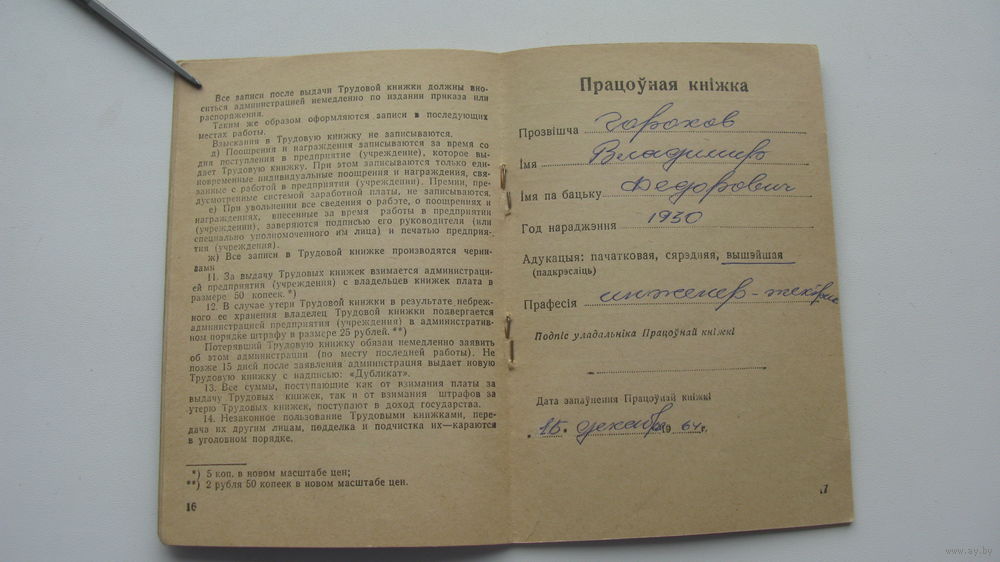 Все записи после выдачи Трудовой книжки должны вно-
ситься администрацией немедленно по издании приказа или
распоряжения.
Таким же образом оформляются записи в последующих
местах работы.
Взыскания в Трудовую книжку не записываются.
д) Поощрения и награждения записываются за время со
дня поступления в предприятие (учреждение), которое вы-
дает Трудовую книжку. При этом записываются только еди-
новременные индивидуальные поощрения и награждения, свя-
занные с работой в предприятии (учреждении). Премии, пре-
дусмотренные системой заработной платы, не записываются.
е) При увольнении все сведения о работе, о поощрениях и
награждениях, внесенные за время работы в предприятии
(учреждении), заверяются подписью его руководителя (или
специально уполномоченного им лица) и печатью предприя-
тия (учреждения).
ж) Все записи в Трудовой книжке производятся черни-
лами
11. За выдачу Трудовых книжек взимается администраци-
ей предприятия (учреждения) с владельцев книжек плата в
размере 50 копеек.*)
12. В случае утери Трудовой книжки в результате небреж-
ного ее хранения владелец Трудовой книжки подвергается
администрацией предприятия (учреждения) в административ-
ном порядке штрафу в размере 25 рублей.**)
Потерявший Трудовую книжку обязан немедленно заявить
об этом администрации (по месту последней работы). Не
позже 15 дней после заявления администрация выдает новую
Трудовую книжку с надписью: «Дубликат».
13. Все суммы, поступающие как от взимания платы за
выдачу Трудовых книжек, так и от взимания штрафов за
утерю Трудовых книжек, поступают в доход государства.
14. Незаконное пользование Трудовыми книжками, пере-
дача их другим лицам, подделка и подчистка их—караются
в уголовном порядке.
*) 5 коп. в новом масштабе цен;
**) 2 рубля 50 копеек в новом масштабе цен.
16
Працоўная кніжка
Прозвішча Горохов
Імя Владимир
Імя па бацьку Федорович
Год нараджэння 1930
Адукацыя: пачатковая, сярэдняя, вышэйшая
(падкрэсліць)
Прафесія инженер-
Подпіс уладальніка Працоўнай кніжкі
Дата запаўнення Працоўнай кніжкі
15. декабря 1964 г.
www.ay.by